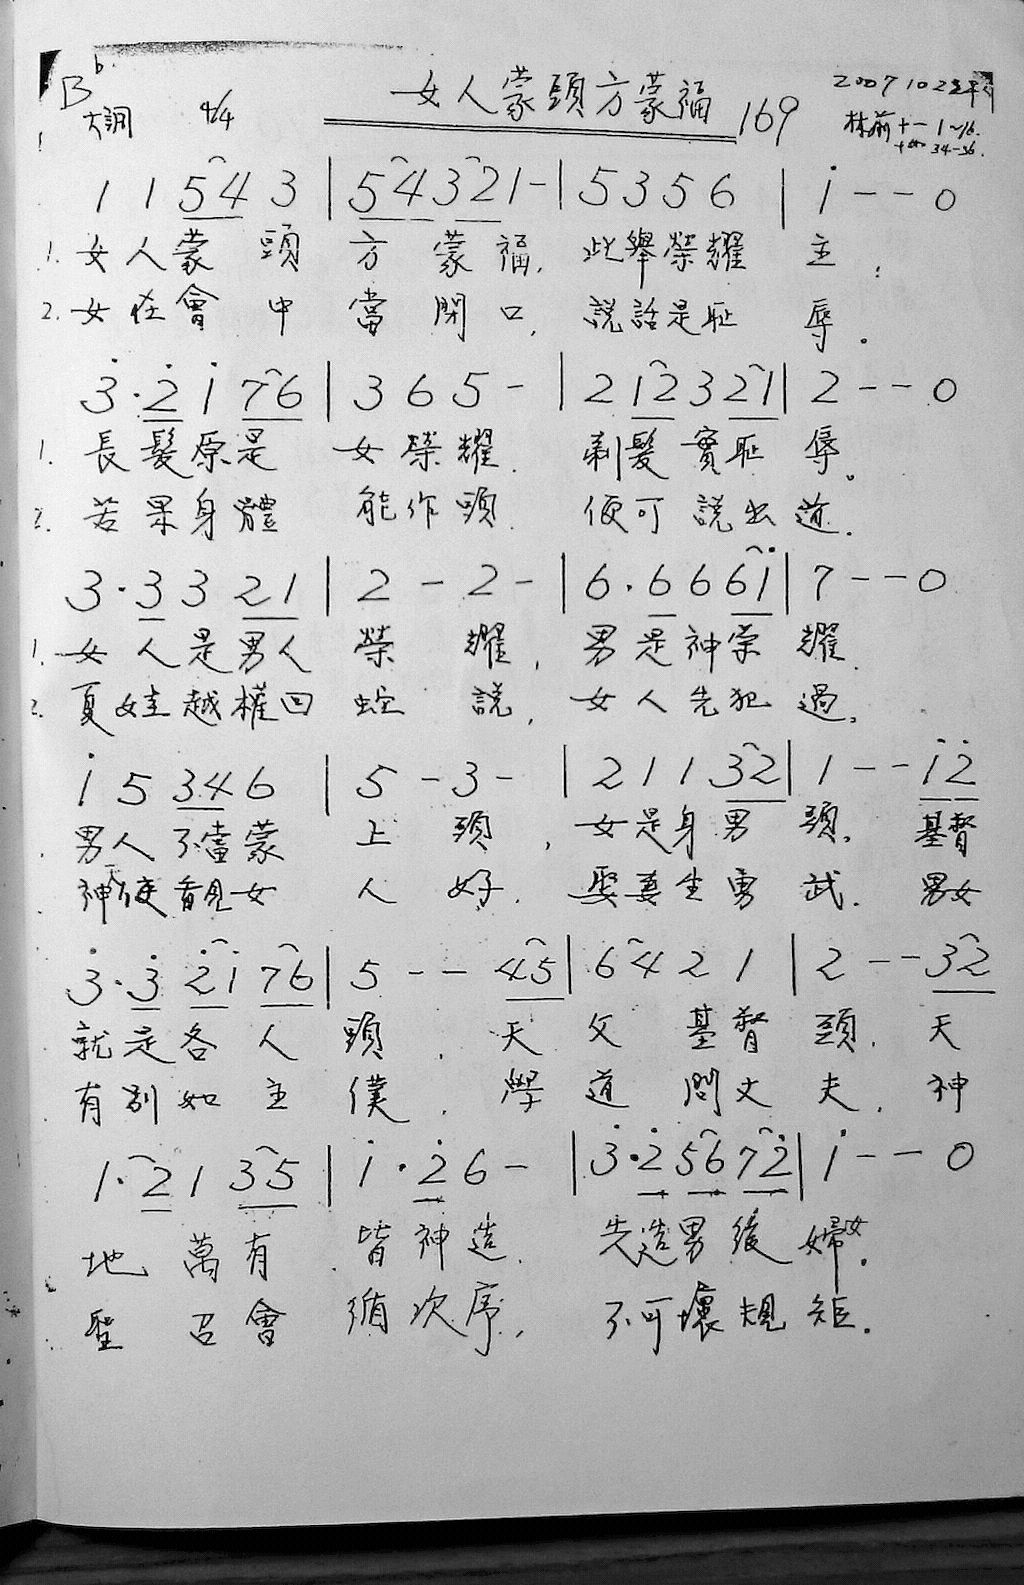 B♭ 大調 4/4 女人蒙頭方蒙福 169 20071022
林前十一 1~16.
34-36.
1 1 5 4 3 | 5 4 3 2 1 - | 5 3 5 6 | i - - 0
1. 女人蒙 頭 方 蒙 福, 此舉榮耀 主;
2. 女在會 中 當 閉 口, 說話是恥 辱.
3̇ · 2̇ i 7 6 | 3 6 5 - | 2 1 2 3 2 1 | 2 - - 0
1. 長髮原是 女榮耀. 剃髮實恥 辱.
2. 若果身體 能作頭. 便可說出道.
3 · 3 3 2 1 | 2 - 2 - | 6 · 6 6 6 i | 7 - - 0
1. 女人是男人 榮 耀, 男是神榮 耀.
2. 夏娃越權回 蛇 說, 女人先犯 過.
i 5 3 4 6 | 5 - 3 - | 2 1 1 3 2 | 1 - - i 2̇
男人不當蒙 上 頭, 女是身男 頭. 基督
神天使看見女 人 好. 娶妻生勇 武. 男女
3̇ · 3̇ 2̇ i 7 6 | 5 - - 4 5 | 6 4 2 1 | 2 - - 3 2
就是各人 頭. 天 父 基督 頭. 天
有別如主 僕. 學 道 問丈 夫. 神
1 · 2 1 3 5 | i · 2̇ 6 - | 3̇ · 2̇ 5 6 7 2̇ | i - - 0
地 萬有 皆神造. 先造男後 婦女.
聖 召會 循次序, 不可壞規矩.